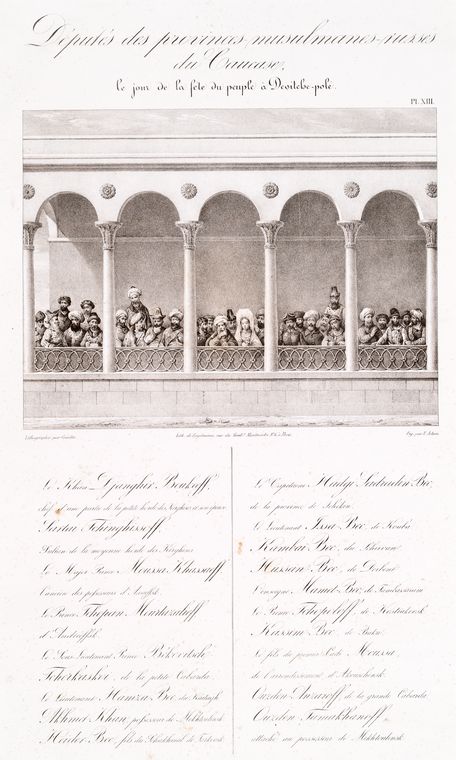 Députés des provinces musulmanes russes
du Caucase,
le jour de la fête du peuple à Devitche-pole.
Pl. XIII.
Lith. de Engelmann, rue du Faub.
Le Khan Djanghir Boukeeff,
chef d'une partie de la petite horde des Kirghises
Sultan Tchinghissoff
Sultan de la moyenne horde des Kirghises
Le Major Prince Moussa Khassaeff
l'ancien des possesseurs d'Axaeffsk.
Le Prince Tchopan Mourtazalieff
d'Andreeffsk.
Le Sous-Lieutenant Prince Békovitch
Tcherkaskoi de la petite Cabarda.
Le Lieutenant Hamza Bec du Karabagh
Akhmet Khan possesseur de Mekhtoulinsk
Heider Bec, fils du Schamkhal de Tarkovsk
Le Capitaine Hadgi Sadreddin Bec
de la province de Scheken.
Le Lieutenant Issa Bec, de Kouba
Kambai Bec, du Schirvan
Hussan Bec, de Derbend
L'enseigne Hamid Bec, de Tambassaran
Le Prince Tchepeloff, de Kostiukovsk
Kassim Bec, de Bakou
Le fils du premier Cadi Moussa,
de l'arrondissement d'Akouschinsk.
Ouzden Anzoroff de la grande Cabarda
Ouzden Tamakhanoff,
attaché au possesseur de Mekhtoulinsk